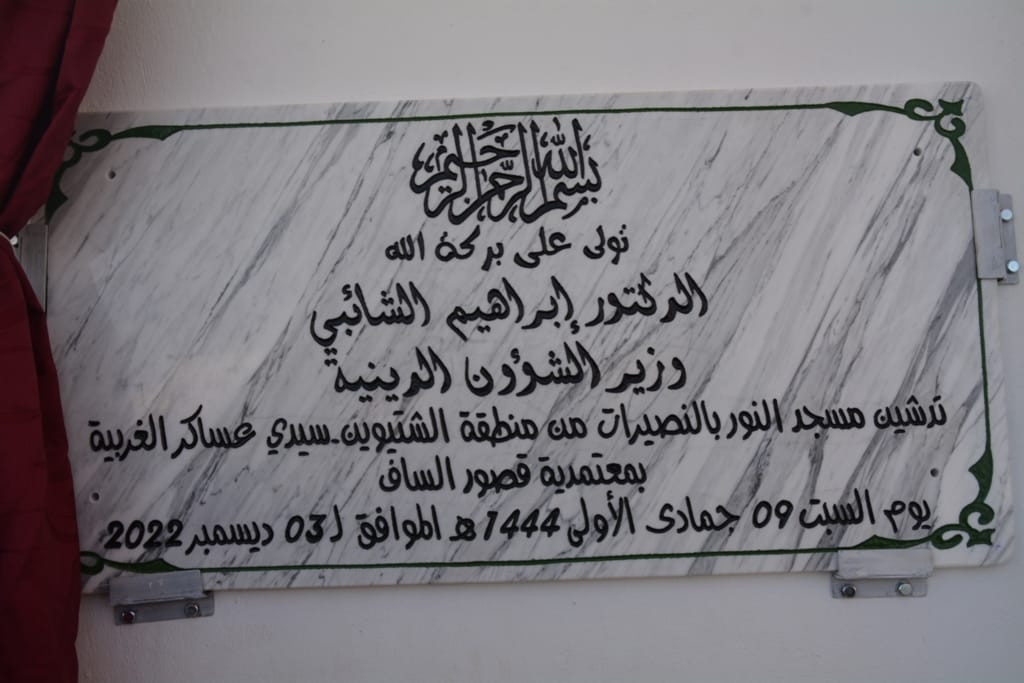 بسم الله الرحمن الرحيم
تولى على بركة الله
الدكتور إبراهيم الشائبي
وزير الشؤون الدينية
تدشين مسجد النور بالنصيرات من منطقة الشتيوين-سيدي عساكر الغربية
بمعتمدية قصور الساف
يوم السبت 09 جمادى الأولى 1444هـ الموافق لـ 03 ديسمبر 2022